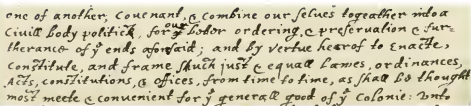 one of another, Couenant, & combine our selues togeather into a
Ciuill body politick, for our better ordering, & preseruation & fur-
therance of yͤ ends aforsaid; and by vertue hearof to enacte,
constitute, and frame shuch just & equall Lawes, ordinances,
Acts, constitutions, & offices, from time to time, as shall be thought
most meete & conuenient for yͤ generall good of yͤ Colonie: Vnto